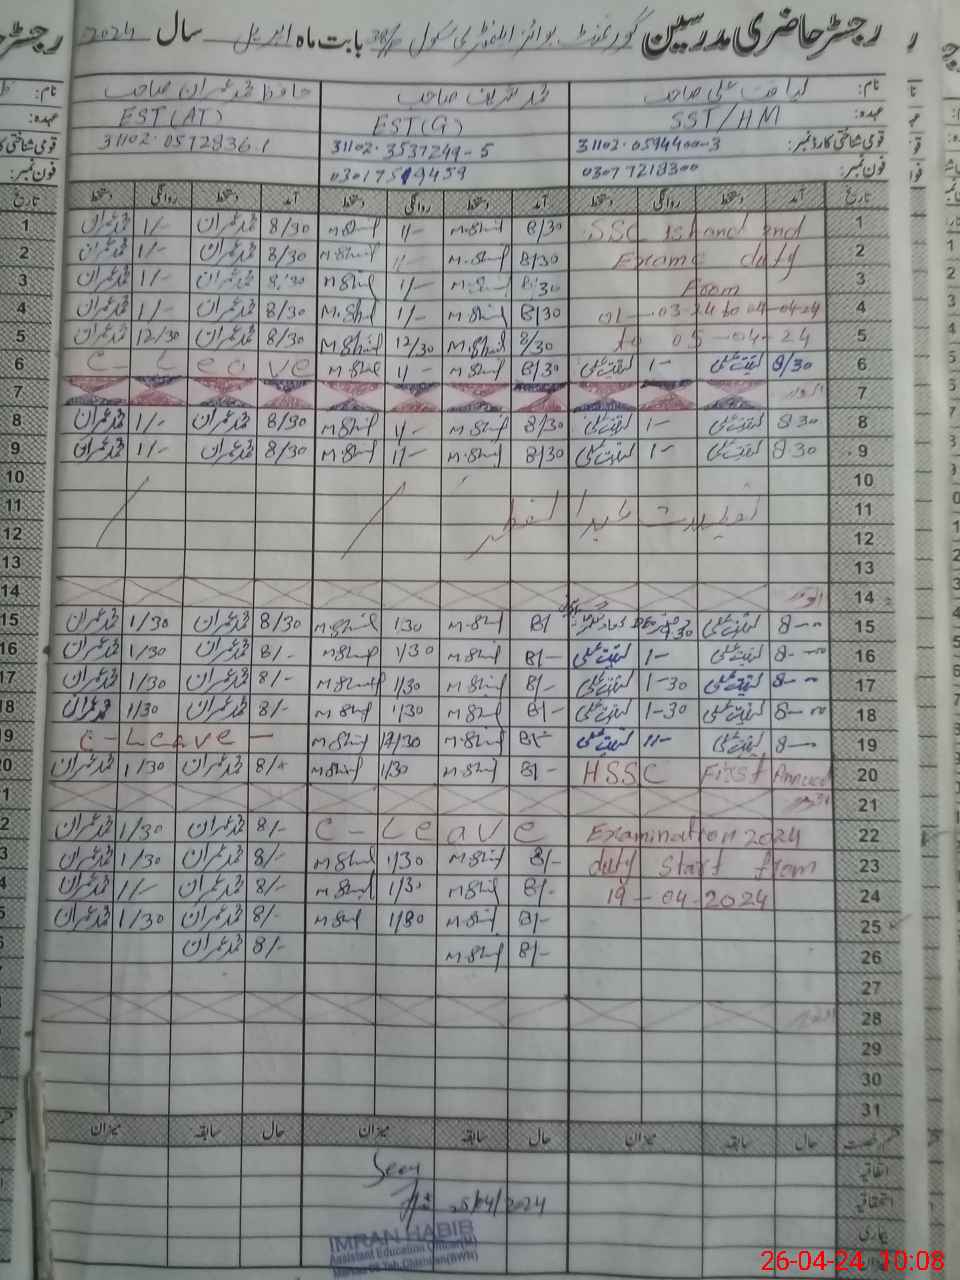 رجسٹر حاضری مدرسین گورنمنٹ بوائز ایلیمنٹری سکول بابت ماہ اپریل سال 2024
نام: لیاقت علی صاحب محمد شریف صاحب حافظ محمد عمران صاحب
عہدہ: SST/HM EST(G) EST(AT)
قومی شناختی کارڈ نمبر: 31102-0594400-3 31102-3537249-5 31102-0572836-1
فون نمبر: 03077218300 03017519459
تاریخ آمد دستخط روانگی دستخط آمد دستخط روانگی دستخط آمد دستخط روانگی دستخط
1 SSC 1st and 2nd 8/30 M.Sharif 1/- M.Sharif 8/30 محمد عمران 1/- محمد عمران
2 Exams duty 8/30 M.Sharif 1/- M.Sharif 8/30 محمد عمران 1/- محمد عمران
3 From 8/30 M.Sharif 1/- M.Sharif 8/30 محمد عمران 1/- محمد عمران
4 01-03-24 to 04-04-24 8/30 M.Sharif 1/- M.Sharif 8/30 محمد عمران 1/- محمد عمران
5 to 05-04-24 8/30 M.Sharif 12/30 M.Sharif 8/30 محمد عمران 12/30 محمد عمران
6 8/30 لیاقت علی 1- لیاقت علی 8/30 M.Sharif 1/- M.Sharif C-Leave
7 اتوار
8 8 30 لیاقت علی 1- لیاقت علی 8/30 M.Sharif 1/- M.Sharif 8/30 محمد عمران 1/- محمد عمران
9 8-30 لیاقت علی 1- لیاقت علی 8/30 M.Sharif 1/- M.Sharif 8/30 محمد عمران 1/- محمد عمران
10
11 تعطیلات عید الفطر
12
13
14 اتوار
15 8-00 لیاقت علی 8/- M.Sharif 1/30 M.Sharif 8/30 محمد عمران 1/30 محمد عمران
16 8-00 لیاقت علی 1- لیاقت علی 8/- M.Sharif 1/30 M.Sharif 8/- محمد عمران 1/30 محمد عمران
17 8-00 لیاقت علی 1-30 لیاقت علی 8/- M.Sharif 1/30 M.Sharif 8/- محمد عمران 1/30 محمد عمران
18 8-00 لیاقت علی 1-30 لیاقت علی 8/- M.Sharif 1/30 M.Sharif 8/- محمد عمران 1/30 محمد عمران
19 8-00 لیاقت علی 11- لیاقت علی 8/- M.Sharif 12/30 M.Sharif C-Leave-
20 HSSC First Annual 8/- M.Sharif 1/30 M.Sharif 8/- محمد عمران 1/30 محمد عمران
21 اتوار
22 Examination 2024 C-Leave 8/- محمد عمران 1/30 محمد عمران
23 duty start from 8/- M.Sharif 1/30 M.Sharif 8/- محمد عمران 1/30 محمد عمران
24 19-04-2024 8/- M.Sharif 1/30 M.Sharif 8/- محمد عمران 1/- محمد عمران
25 8/- M.Sharif 1/30 M.Sharif 8/- محمد عمران 1/30 محمد عمران
26 8/- M.Sharif 8/- محمد عمران
27
28 اتوار
29
30
31
حال سابقہ میزان حال سابقہ میزان حال سابقہ میزان
اتفاقیہ
Seen
25/04/2024
IMRAN HABIB
Assistant Education Officer(M)
26-04-24 10:08